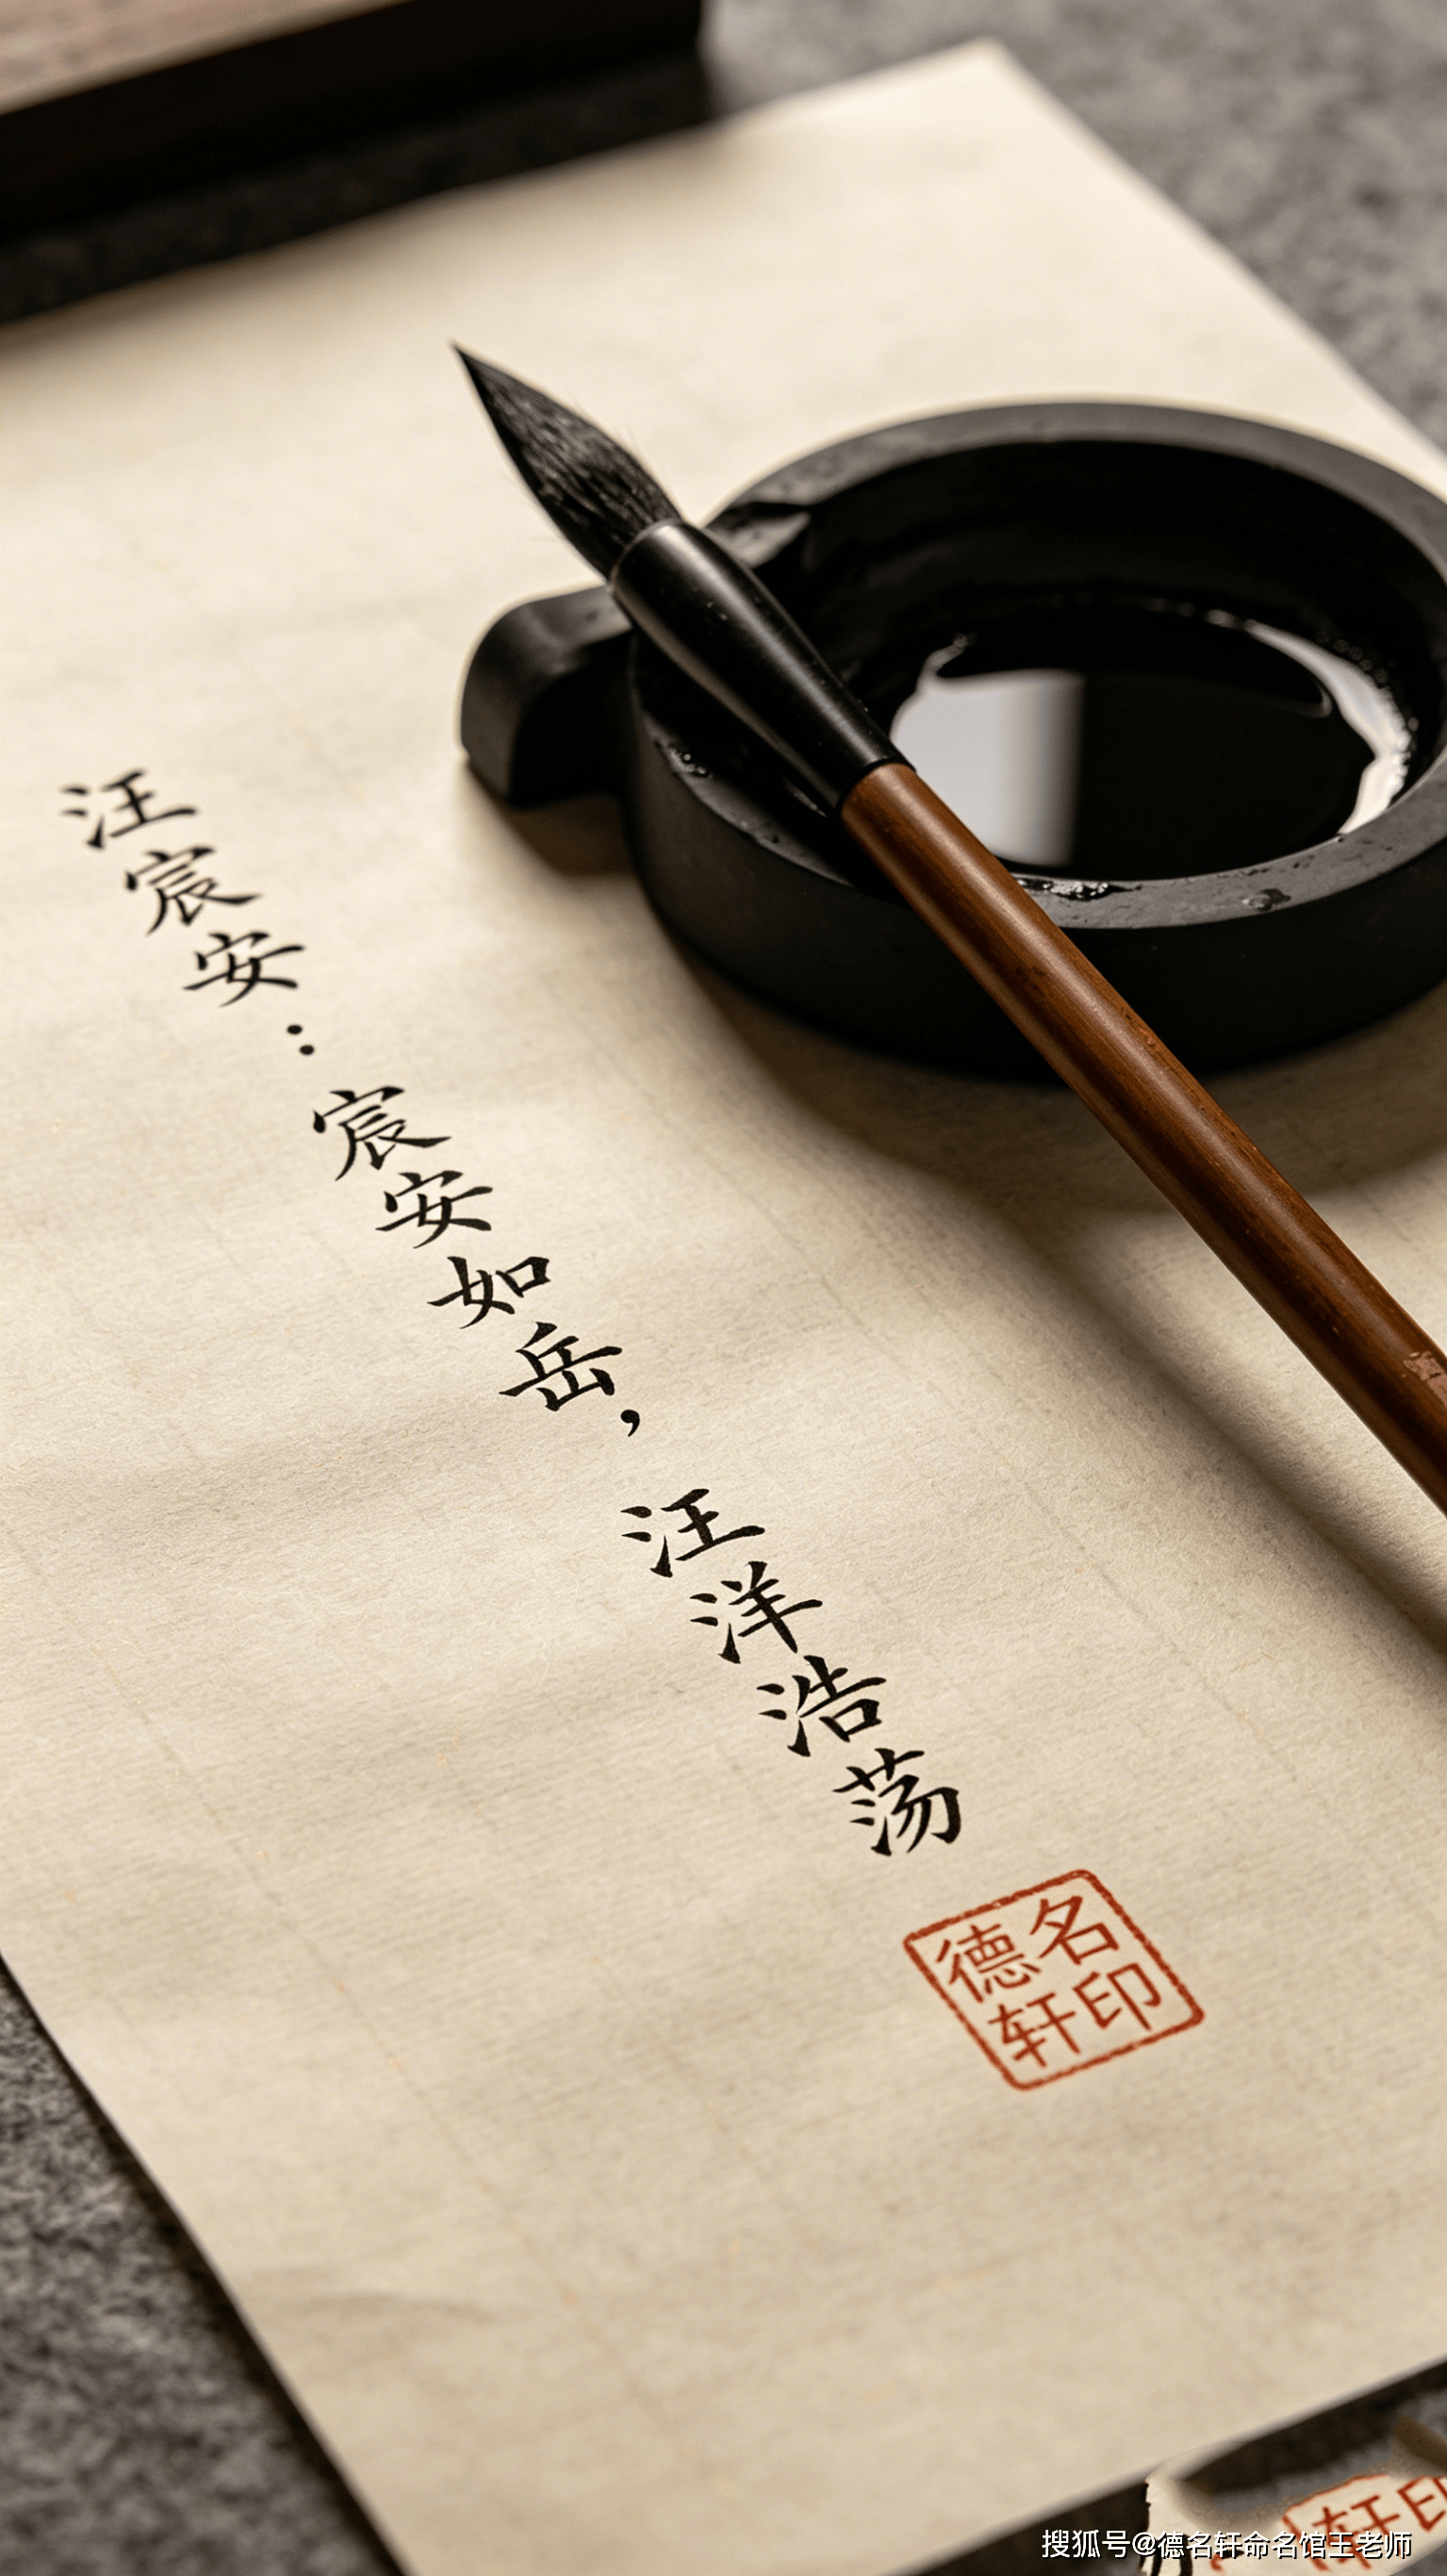 汪宸安：宸安如岳，汪洋浩荡
德名
轩印
轩印
搜狐号@德名轩命名馆王老师